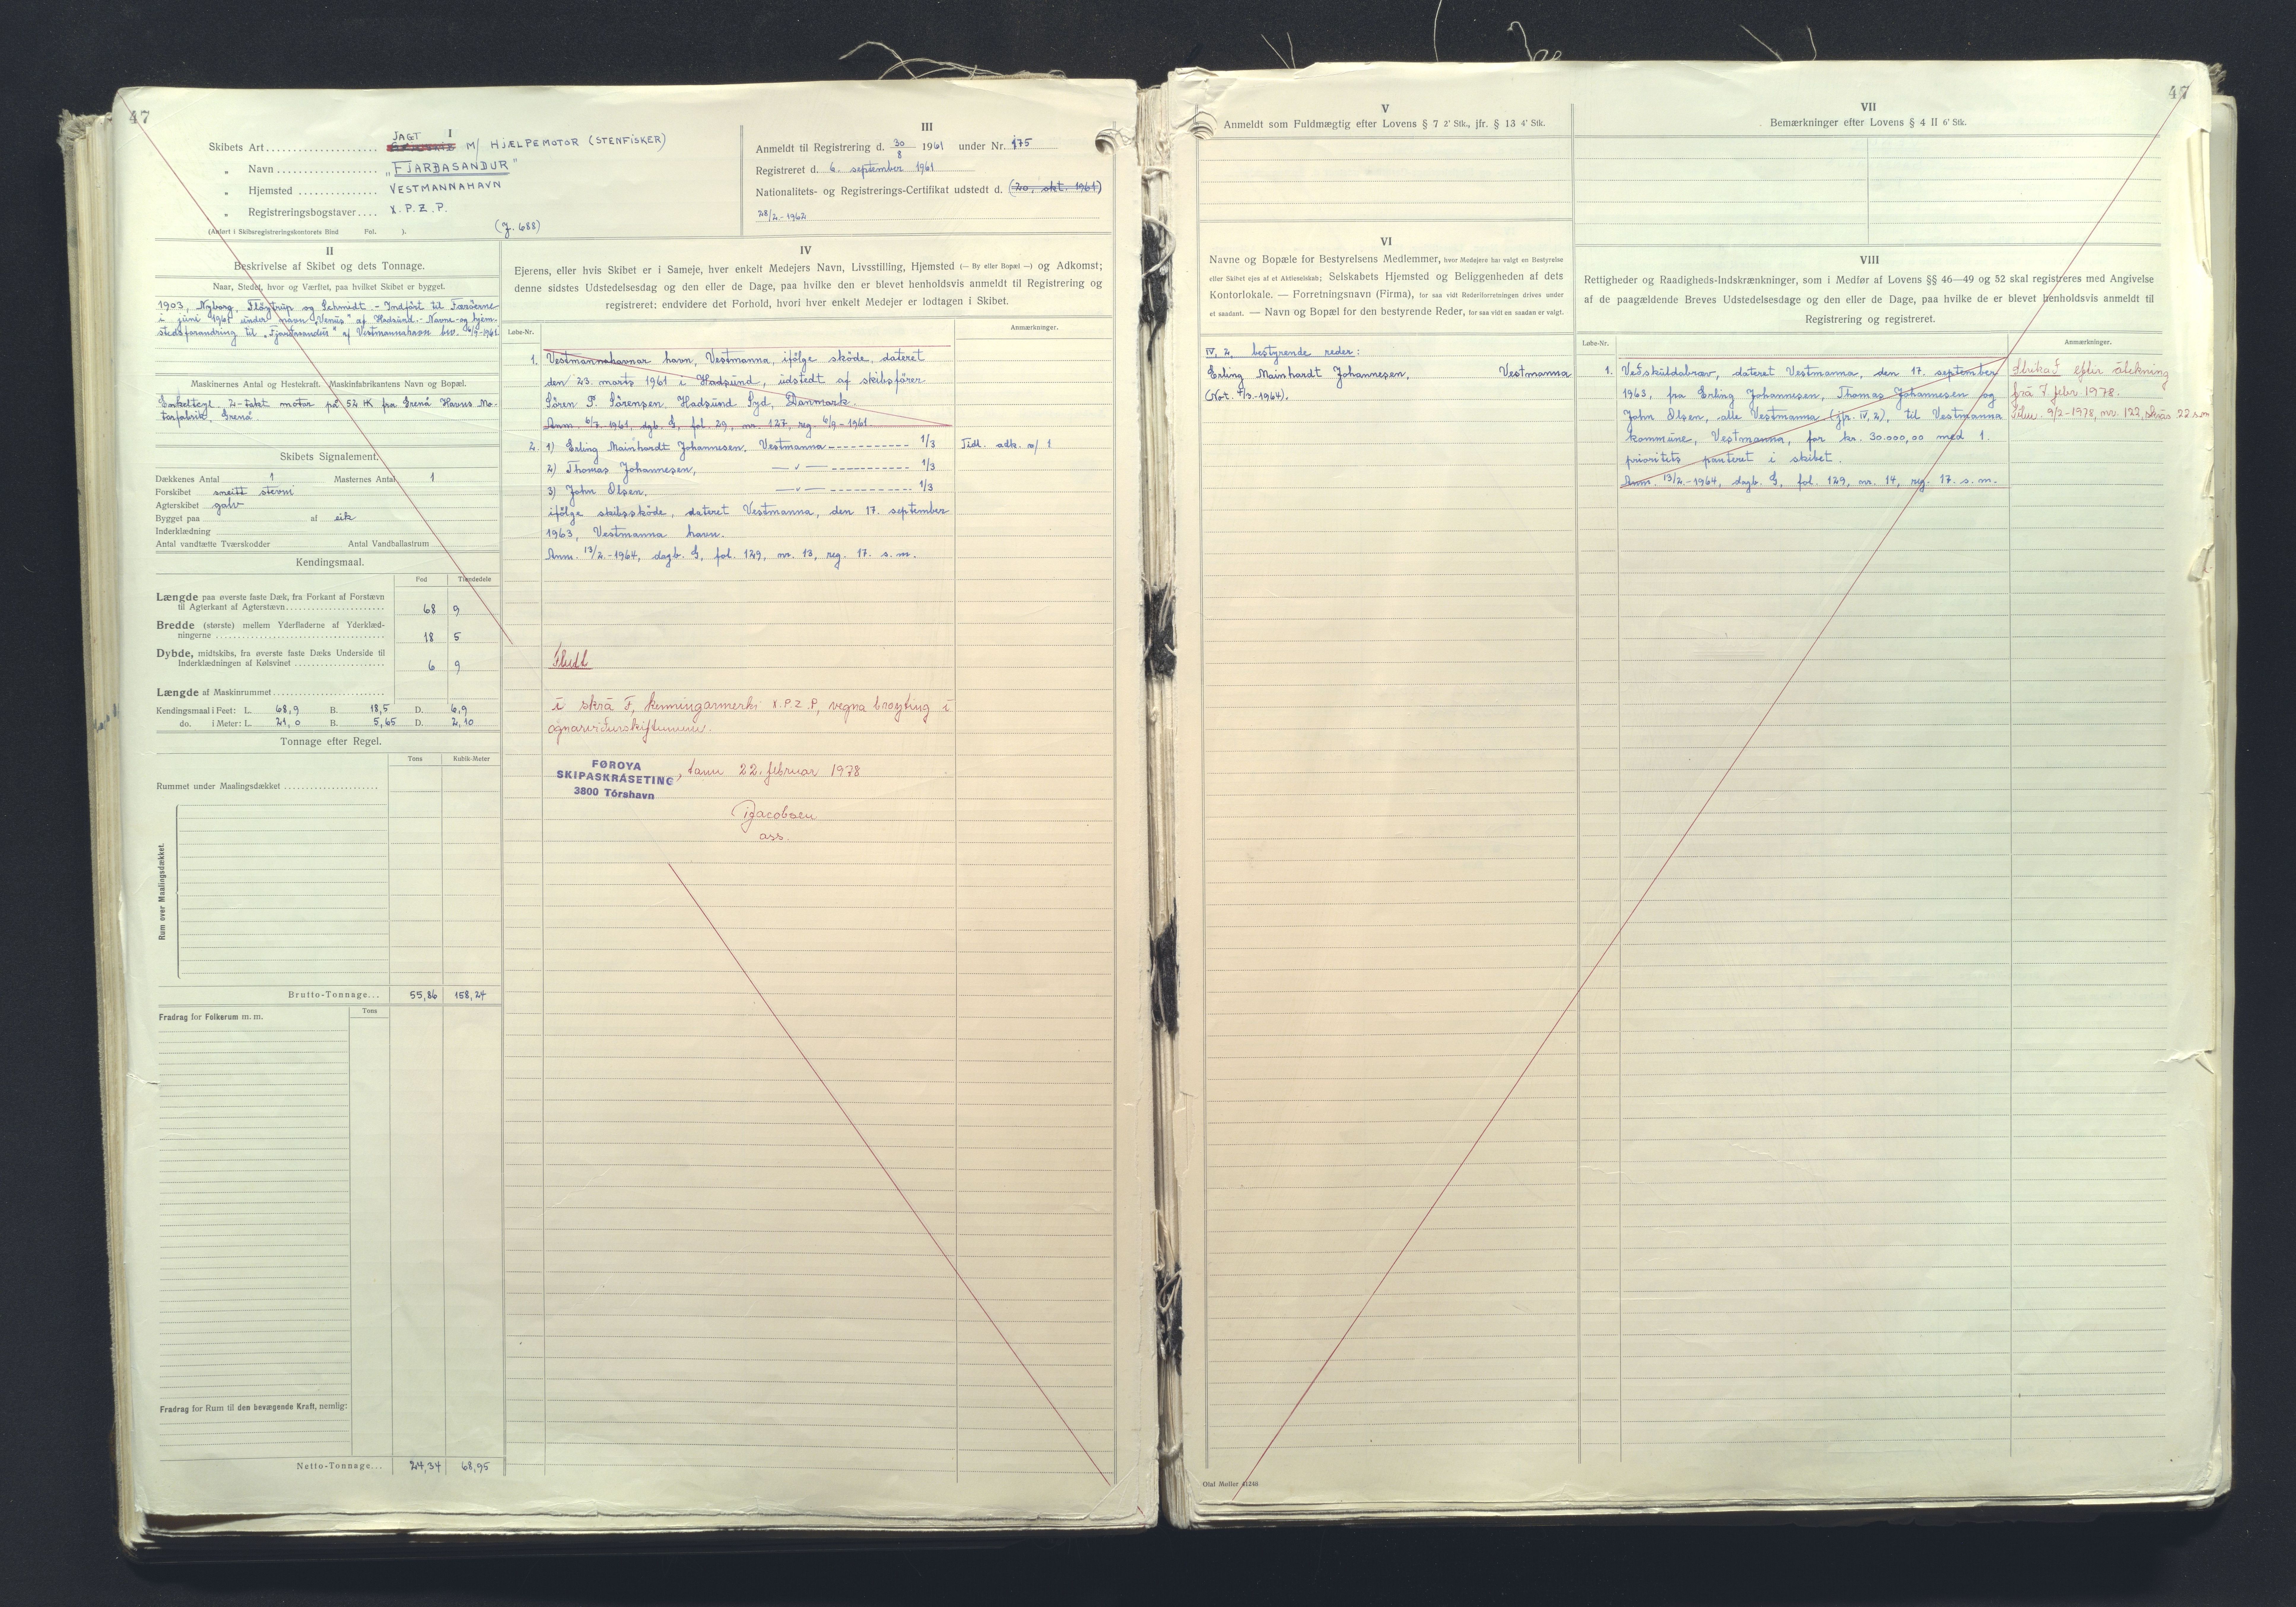 47
I
Skibets Art .................... JAGT M/ HJÆLPEMOTOR (STENFISKER)
„ Navn ................... „FJARÐASANDUR"
„ Hjemsted .............. VESTMANNAHAVN
„ Registreringsbogstaver .... X.P.Z.P.
(Anført i Skibsregistreringskontorets Bind Fol. ).
(J. 688)
III
Anmeldt til Registrering d. 30/8 1961 under Nr. 175
Registreret d. 6. september 1961
Nationalitets- og Registrerings-Certifikat udstedt d. (20. okt. 1961)
28/2.-1962
II
Beskrivelse af Skibet og dets Tonnage.
Naar, Stedet, hvor og Værftet, paa hvilket Skibet er bygget.
1903, Nyborg, Fløjtrup og Schmidt. - Indført til Færøerne
i juni 1961 under navn „Venus" af Hadsund. - Navne- og hjem-
stedsforandring til „Fjarðasandur" af Vestmannahavn bev. 6/9-1961
Maskinernes Antal og Hestekraft. Maskinfabrikantens Navn og Bopæl.
Enkeltcyl. 2-takt motor på 52 HK fra Grenå Havns Mo-
torfabrik, Grenå
Skibets Signalement.
Dækkenes Antal 1 Masternes Antal 1
Forskibet sneitt stevni
Agterskibet galv
Bygget paa af eik
Inderklædning
Antal vandtætte Tværskodder Antal Vandballastrum
Kendingsmaal.
Fod Tiendedele
Længde paa øverste faste Dæk, fra Forkant af Forstævn
til Agterkant af Agterstævn ........ 68 9
Bredde (største) mellem Yderfladerne af Yderklæd-
ningerne ........ 18 5
Dybde, midtskibs, fra øverste faste Dæks Underside til
Inderklædningen af Kølsvinet ........ 6 9
Længde af Maskinrummet ........
Kendingsmaal i Feet: L. 68,9 B. 18,5 D. 6,9
do. i Meter: L. 21,0 B. 5,65 D. 2,10
Tonnage efter Regel.
Tons Kubik-Meter
Rummet under Maalingsdækket ........
Rum over Maalingsdækket.
Brutto-Tonnage... 55,86 158,24
Fradrag for Folkerum m. m. Tons
Fradrag for Rum til den bevægende Kraft, nemlig:
Netto-Tonnage... 24,34 68,95
IV
Ejerens, eller hvis Skibet er i Sameje, hver enkelt Medejers Navn, Livsstilling, Hjemsted (— By eller Bopæl —) og Adkomst;
denne sidstes Udstedelsesdag og den eller de Dage, paa hvilke den er blevet henholdsvis anmeldt til Registrering og
registreret: endvidere det Forhold, hvori hver enkelt Medejer er lodtagen i Skibet.
Løbe-Nr. Anmærkninger.
1. Vestmannahavnar havn, Vestmanna, ifölge sköde, dateret
den 23. marts 1961 i Hadsund, udstedt af skibsförer
Sören P. Sörensen, Hadsund Syd, Danmark.
Anm. 6/7. 1961, dgb. G, fol. 29, nr. 127, reg. 6/9-1961.
2. 1) Erling Mainhardt Johannesen, Vestmanna ----------- 1/3 Tidl. adk. n/ 1
2) Thomas Johannesen, —„— ----------- 1/3
3) John Olsen, —„— ----------- 1/3
ifölge skibsköde, dateret Vestmanna, den 17. september
1963, Vestmanna havn.
Anm. 13/2.-1964, dagb. G, fol. 129, nr. 13, reg. 17. s. m.
Flutt
í skrá F, kenningarmerki X.P.Z.P, vegna broyting í
ognarviðurskiftunum.
FØROYA
SKIPASKRÁSETING
3800 Tórshavn
, tann 22. februar 1978
Jacobsen
ass.
47
V
Anmeldt som Fuldmægtig efter Lovens § 7 2' Stk., jfr. § 13 4' Stk.
VII
Bemærkninger efter Lovens § 4 II 6' Stk.
VI
Navne og Bopæle for Bestyrelsens Medlemmer, hvor Medejere har valgt en Bestyrelse
eller Skibet ejes af et Aktieselskab; Selskabets Hjemsted og Beliggenheden af dets
Kontorlokale. — Forretningsnavn (Firma), for saa vidt Rederiforretningen drives under
et saadant. — Navn og Bopæl for den bestyrende Reder, for saa vidt en saadan er valgt.
IV, 2, bestyrende reder:
Erling Mainhardt Johannesen, Vestmanna
VIII
Rettigheder og Raadigheds-Indskrænkninger, som i Medfør af Lovens §§ 46—49 og 52 skal registreres med Angivelse
af de paagældende Breves Udstedelsesdage og den eller de Dage, paa hvilke de er blevet henholdsvis anmeldt til
Registrering og registreret.
Løbe-Nr. Anmærkninger.
1. Veðskuldabrav, dateret Vestmanna, den 17. september
1963, fra Erling Johannesen, Thomas Johannesen og
John Olsen, alle Vestmanna (jfr. IV, 2), til Vestmanna
kommune, Vestmanna, for kr. 30.000,00 med 1.
prioritets panteret i skibet.
Anm. 13/2.-1964, dagb. G, fol. 129, nr. 14, reg. 17. s. m.
Strikað eftir átekning
frá 7. febr 1978.
9/2-1978, nr. 122, skrás. 22 s.m
Olaf Møller 41248